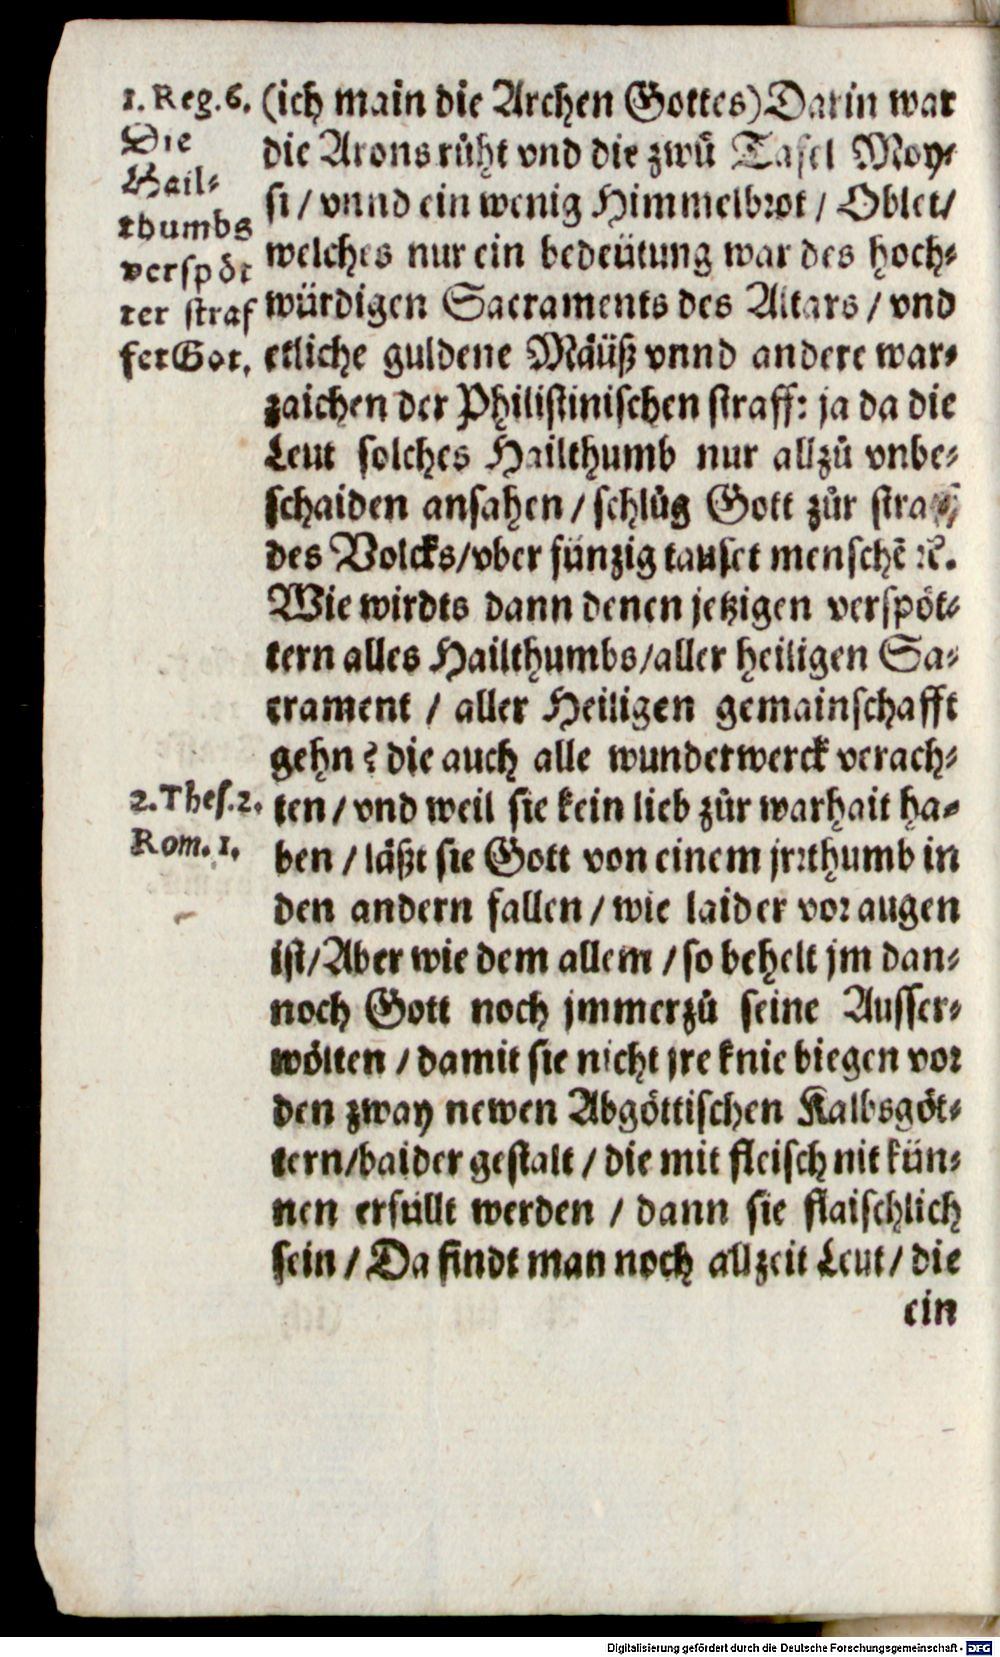 1. Reg. 6.
Die
Hail⸗
thumbs
verspöt
ter straf
fet Got.
(ich main die Archen Gottes) Darin war
die Arons růht vnd die zwů Tafel Moy⸗
si / vnnd ein wenig Himmelbrot / Oblet/
welches nur ein bedeütung war des hoch⸗
würdigen Sacraments des Altars / vnd
etliche guldene Mäüß vnnd andere war⸗
zaichen der Philistinischen straff: ja da die
Leut solches Hailthumb nur allzů vnbe⸗
schaiden ansahen / schlůg Gott zůr straff
des Volcks/vber fünzig tauset menschẽ ꝛc.
Wie wirdts dann denen jetzigen verspöt⸗
tern alles Hailthumbs/aller heiligen Sa⸗
crament / aller Heiligen gemainschafft
gehn? die auch alle wunderwerck verach⸗
2. Thes. 2.
Rom. 1.
ten / vnd weil sie kein lieb zůr warhait ha⸗
ben / läßt sie Gott von einem jrrthumb in
den andern fallen / wie laider vor augen
ist/Aber wie dem allem / so behelt jm dan⸗
noch Gott noch jmmerzů seine Ausser⸗
wölten / damit sie nicht jre knie biegen vor
den zway newen Abgöttischen Kalbsgöt⸗
tern/baider gestalt / die mit fleisch nit kün⸗
nen erfüllt werden / dann sie flaischlich
sein / Da findt man noch allzeit Leut / die
ein
Digitalisierung gefördert durch die Deutsche Forschungsgemeinschaft - DFG